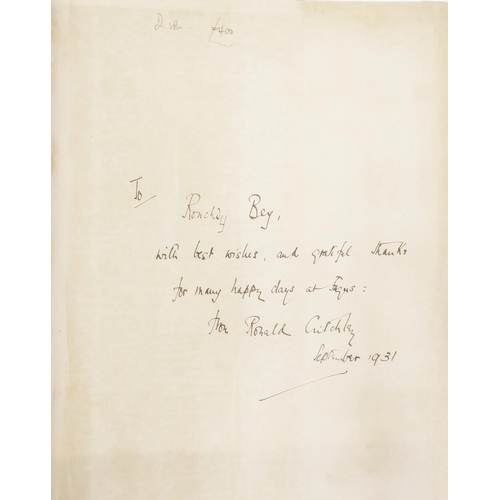 £400
To
Bey,
with best wishes, and grateful thanks
for many happy days at Fayus:
from Ronald Critchley
September 1931